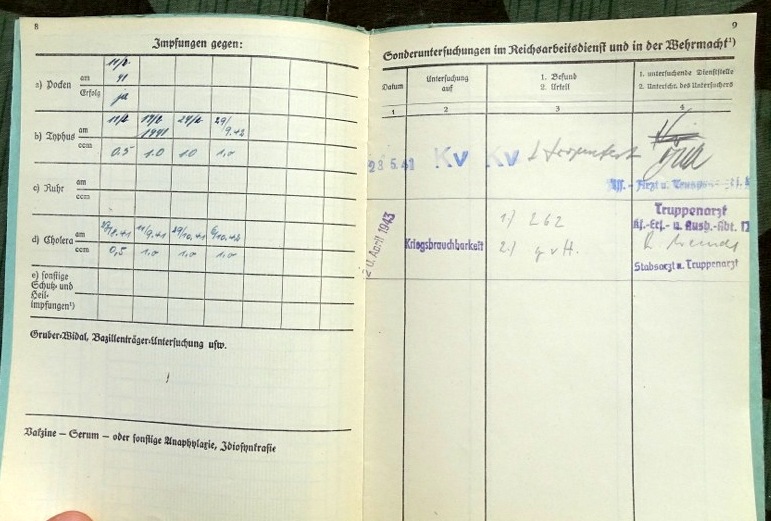 8
Impfungen gegen:
a) Pocken am 11/2 41
Erfolg ja
b) Typhus am 11/2 17/2 1941 24/2 29/9.42
ccm 0,5 1.0 1.0 1,0
c) Ruhr am
ccm
d) Cholera am 11/9.41 29/10.41 6/10.42
ccm 0,5 1,0 1,0 1,0
e) sonstige
Schutz- und
Heil-
impfungen¹)
Gruber-Widal, Bazillenträger-Untersuchung usw.
Vakzine — Serum — oder sonstige Anaphylaxie, Idiosynkrasie
9
Sonderuntersuchungen im Reichsarbeitsdienst und in der Wehrmacht¹)
Datum
Untersuchung
auf
1. Befund
2. Urteil
1. untersuchende Dienststelle
2. Unterschr. des Untersuchers
1 2 3 4
23.5.41 Kv Kv
Ass.-Arzt u.
April 1943
Kriegsbrauchbarkeit
1.) L 62
2.) g v H.
Truppenarzt
Kf.-Ers.- u. Ausb.-Abt.
Stabsarzt u. Truppenarzt